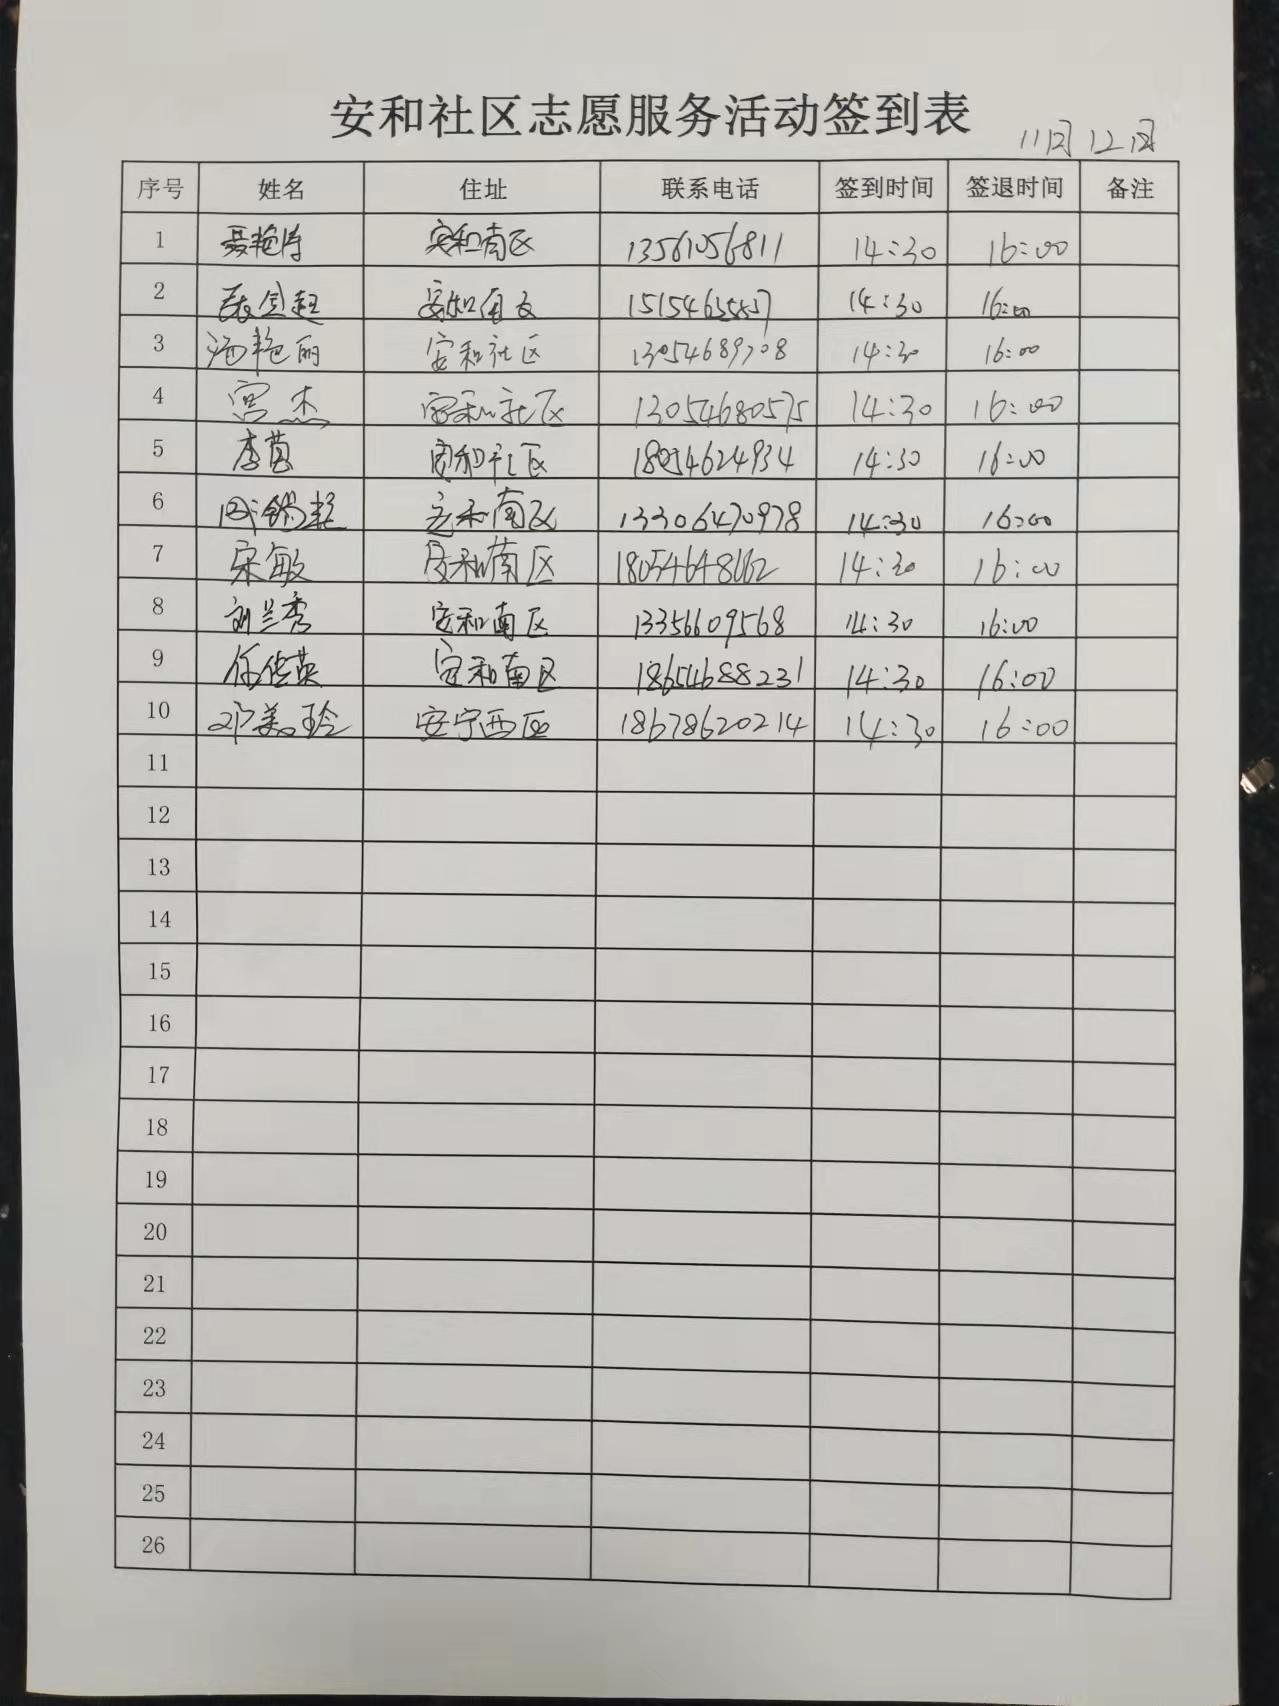 安和社区志愿服务活动签到表
11月12日
序号 姓名 住址 联系电话 签到时间 签退时间 备注
1 聂艳涛 安和南区 13561056811 14:30 16:00
2 安和南区 14:30 16:00
3 汤艳丽 安和社区 13054689708 14:30 16:00
4 宫杰 安和社区 13054680575 14:30 16:00
5 李茵 安和社区 18054624934 14:30 16:00
6 安和南区 13306470978 14:30 16:00
7 宋敏 安和南区 14:30 16:00
8 刘兰秀 安和南区 13356609568 14:30 16:00
9 任佳英 安和南区 18654688231 14:30 16:00
10 邓美玲 安宁西区 18678620214 14:30 16:00
11
12
13
14
15
16
17
18
19
20
21
22
23
24
25
26